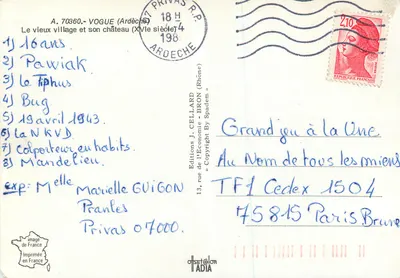 A. 70360.- VOGUE (Ardèche)
Le vieux village et son château (XVIe siècle)
1) 16 ans.
2) Pawiak
3) le Typhus
4) Bug
5) 19 avril 1943.
6) la NKVD
7) Colporteur en habits.
8) Mandelieu.
exp: Melle Marielle GUIGON
Pranles
Privas 07000.
image
de France
Imprimée
en France
Editions J. CELLARD
13, rue de l'Economie - BRON (Rhône)
« Copyright By Spadem »
distribution
TADIA
07 PRIVAS R.P.
18 H
ARDECHE
2,10
Grand jeu à la Une
Au Nom de tous les miens
TF1 Cedex 1504
75815 Paris Brune